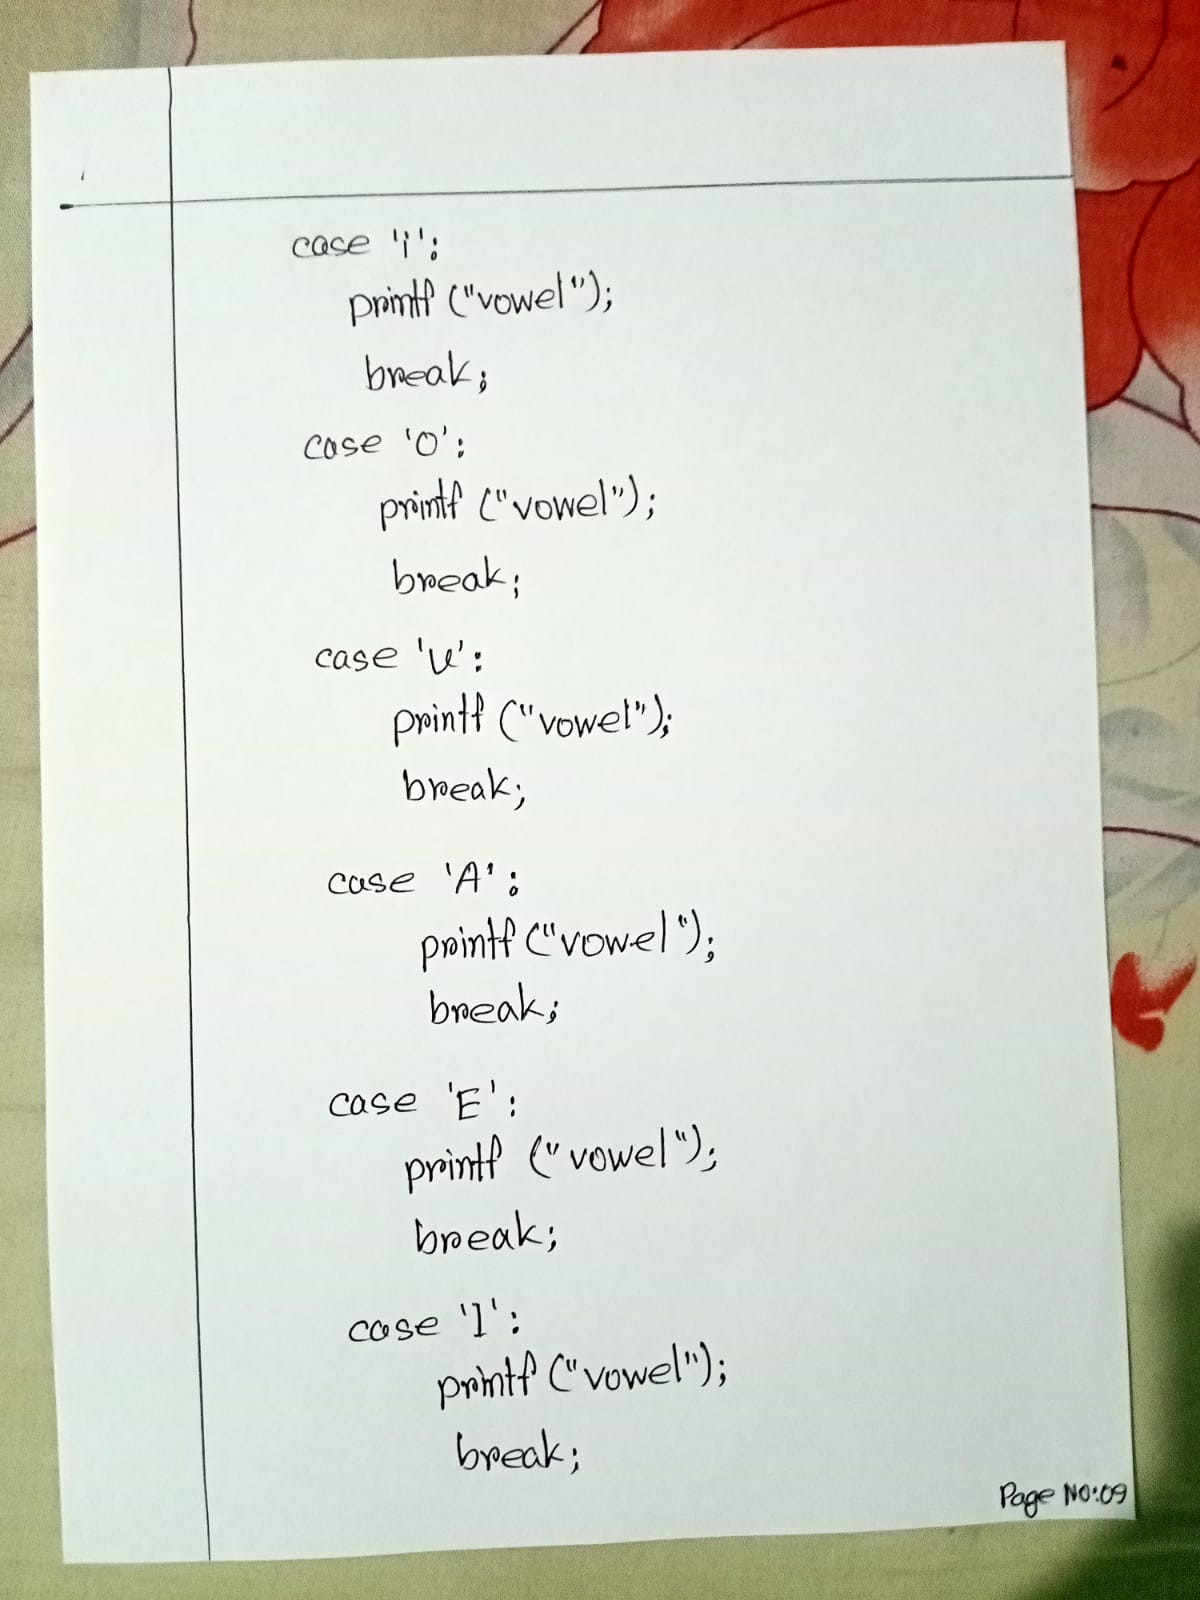 case 'i':
printf ("vowel");
break;
case 'O':
printf ("vowel");
break;
case 'u':
printf ("vowel");
break;
case 'A':
printf ("vowel");
break;
case 'E':
printf ("vowel");
break;
case 'I':
printf ("vowel");
break;
Page NO:09